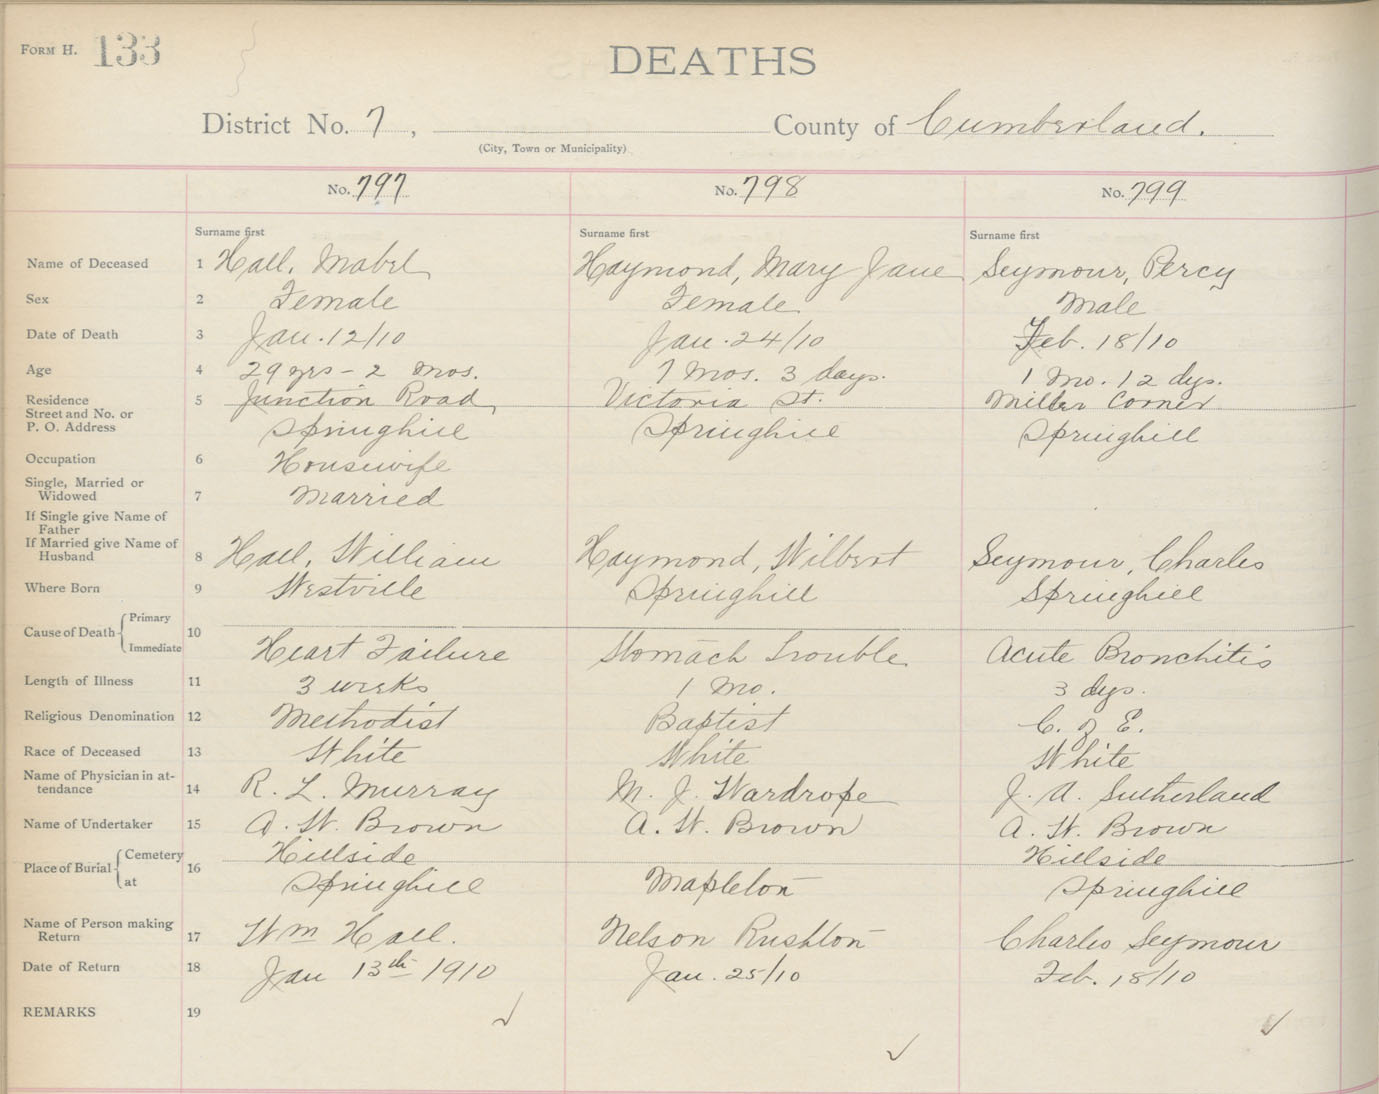 FORM H. 133
DEATHS
District No. 7, County of Cumberland.
(City, Town or Municipality)
No. 797 No. 798 No. 799
Surname first Surname first Surname first
Name of Deceased 1 Hall, Mabel Haymond, Mary Jane Seymour, Percy
Sex 2 Female Female Male
Date of Death 3 Jan. 12/10 Jan. 24/10 Feb. 18/10
Age 4 29 yrs - 2 mos. 7 mos. 3 days. 1 mo. 12 dys.
Residence 5 Junction Road, Victoria St. Miller Corner
Street and No. or
P. O. Address Springhill Springhill Springhill
Occupation 6 Housewife
Single, Married or
Widowed 7 Married
If Single give Name of
Father
If Married give Name of
Husband 8 Hall, William Haymond, Wilbert Seymour, Charles
Where Born 9 Westville Springhill Springhill
Cause of Death Primary 10
Immediate Heart Failure Stomach Trouble Acute Bronchitis
Length of Illness 11 3 weeks 1 mo. 3 dys.
Religious Denomination 12 Methodist Baptist C. of E.
Race of Deceased 13 White White White
Name of Physician in at-
tendance 14 R. L. Murray M. J. Wardrope J. A. Sutherland
Name of Undertaker 15 A. W. Brown A. W. Brown A. W. Brown
Place of Burial Cemetery 16 Hillside Hillside
at Springhill Mapleton Springhill
Name of Person making
Return 17 Wm Hall. Nelson Rushton Charles Seymour
Date of Return 18 Jan 13th 1910 Jan. 25/10 Feb. 18/10
REMARKS 19 ✓ ✓ ✓